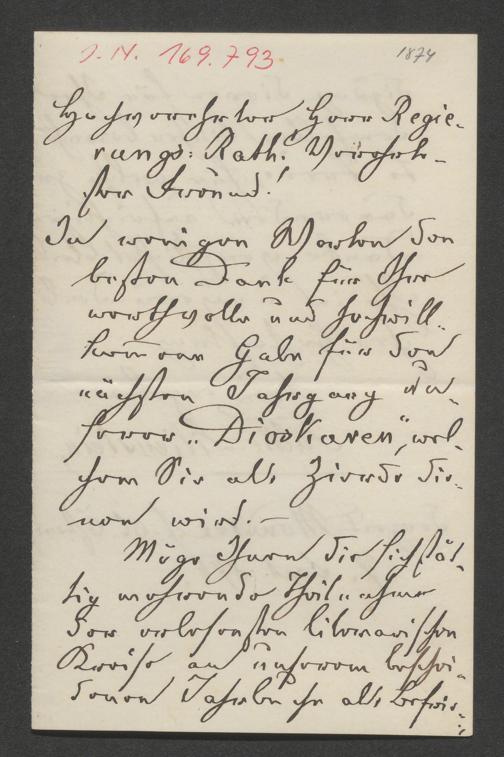 J. N. 169.793
1874
Hochverehrter Herr Regie-
rungs-Rath! Verehrte-
ster Freund!
In wenigen Worten den
besten Dank für Ihre
werthvolle und hochwill-
kom̄ene Gabe für den
nächsten Jahrgang un-
serer „Dioskuren“, wel-
chem Sie als Zierde die-
nen wird. —
Möge Ihnen die sich stät-
tig mehrende Theilnahme
der erlesensten literarischen
Kreise an unserem beschei-
denen Jahrbuche als Bewei-